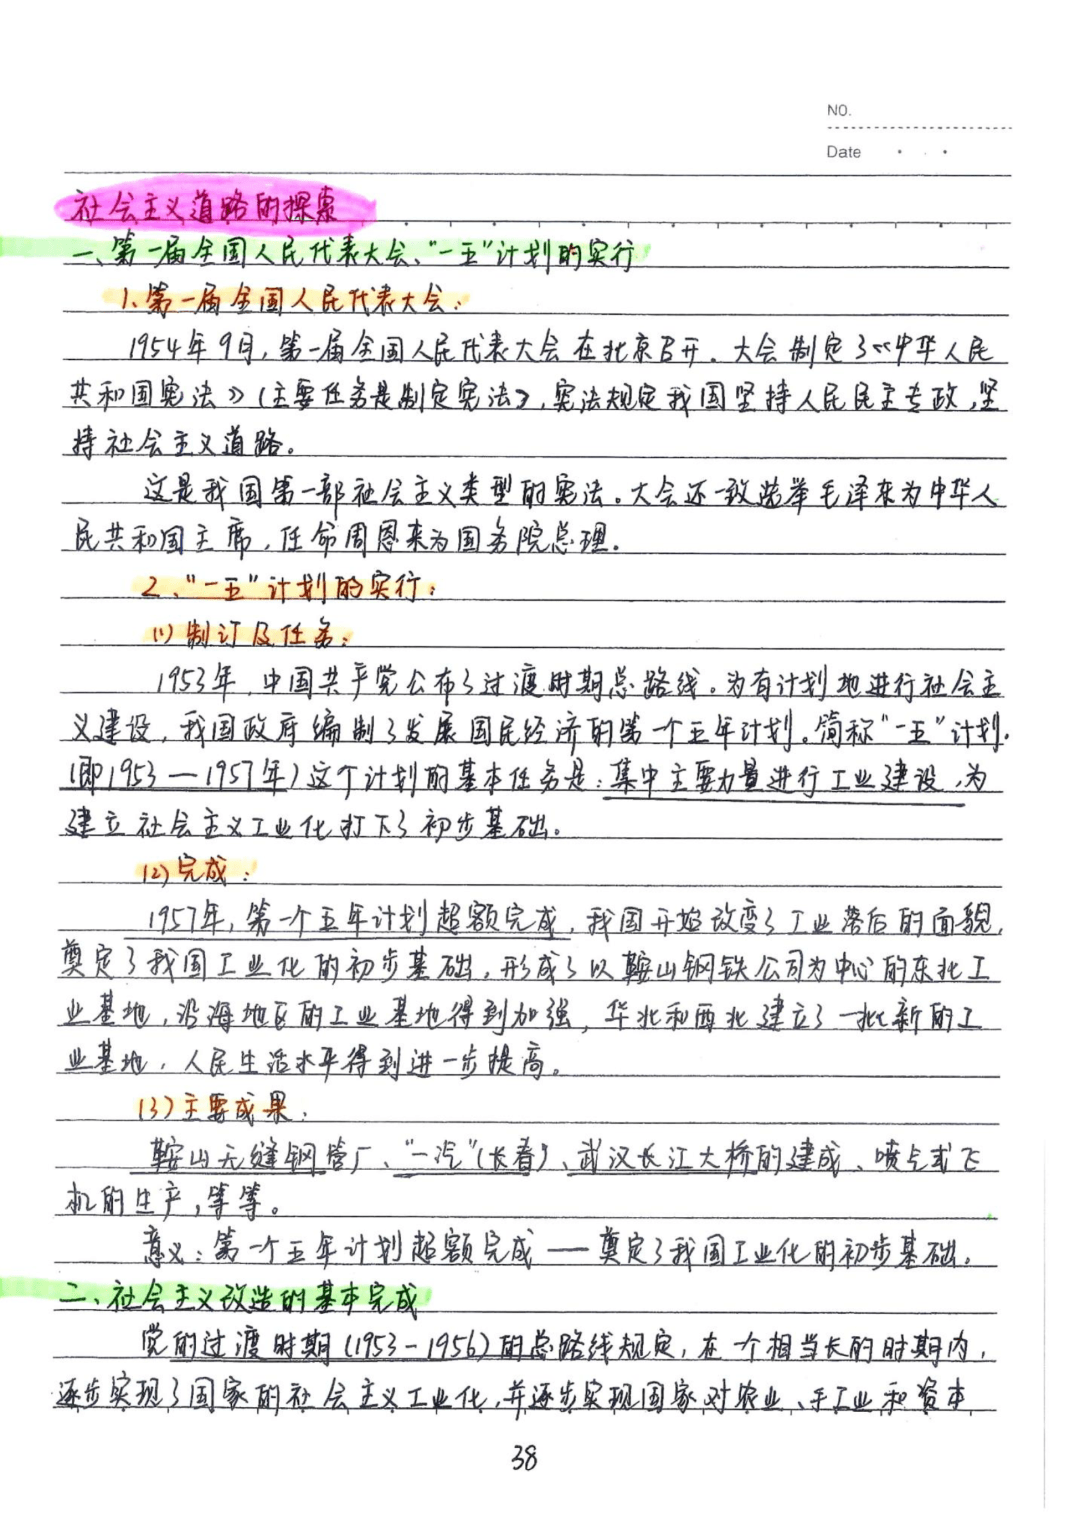 NO.
Date
社会主义道路的探索
一、第一届全国人民代表大会、"一五"计划的实行
1、第一届全国人民代表大会：
1954年9月，第一届全国人民代表大会在北京召开。大会制定了《中华人民
共和国宪法》（主要任务是制定宪法），宪法规定我国坚持人民民主专政，坚
持社会主义道路。
这是我国第一部社会主义类型的宪法。大会还一致选举毛泽东为中华人
民共和国主席，任命周恩来为国务院总理。
2、"一五"计划的实行：
(1)制订及任务：
1953年，中国共产党公布了过渡时期总路线。为有计划地进行社会主
义建设，我国政府编制了发展国民经济的第一个五年计划。简称"一五"计划.
(即1953—1957年)这个计划的基本任务是：集中主要力量进行工业建设，为
建立社会主义工业化打下了初步基础。
(2)完成：
1957年，第一个五年计划超额完成，我国开始改变了工业落后的面貌，
奠定了我国工业化的初步基础，形成了以鞍山钢铁公司为中心的东北工
业基地，沿海地区的工业基地得到加强，华北和西北建立了一批新的工
业基地，人民生活水平得到进一步提高。
(3)主要成果：
鞍山无缝钢管厂、"一汽"(长春)、武汉长江大桥的建成、喷气式飞
机的生产，等等。
意义：第一个五年计划超额完成——奠定了我国工业化的初步基础。
二、社会主义改造的基本完成
党的过渡时期(1953-1956)的总路线规定，在一个相当长的时期内，
逐步实现了国家的社会主义工业化，并逐步实现国家对农业、手工业和资本
38